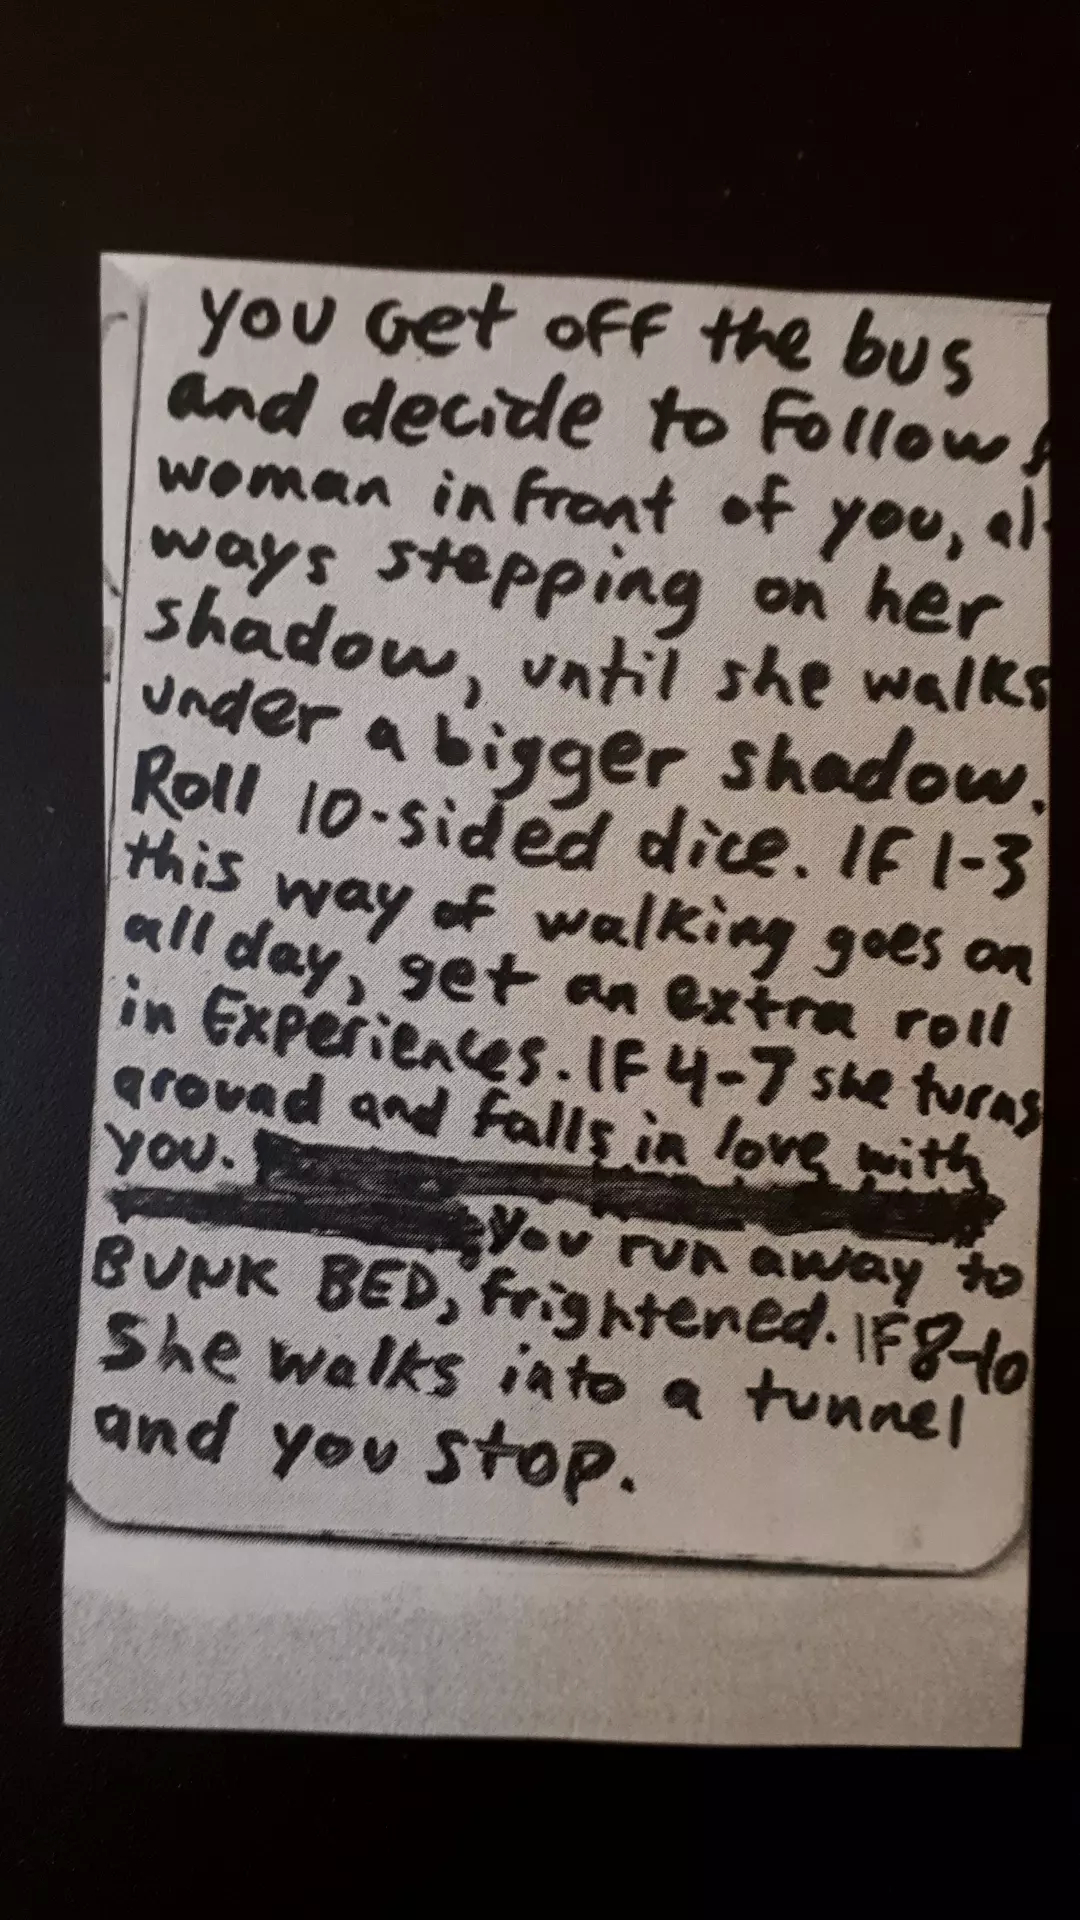 you Get off the bus
and decide to follow a
woman in front of you, al-
ways stepping on her
shadow, until she walks
under a bigger shadow.
Roll 10-sided dice. IF 1-3
this way of walking goes on
all day, get an extra roll
in Experiences. IF 4-7 she turns
around and falls in love with
you.
you run away to
BUNK BED, frightened. IF 8-10
She walks into a tunnel
and you stop.